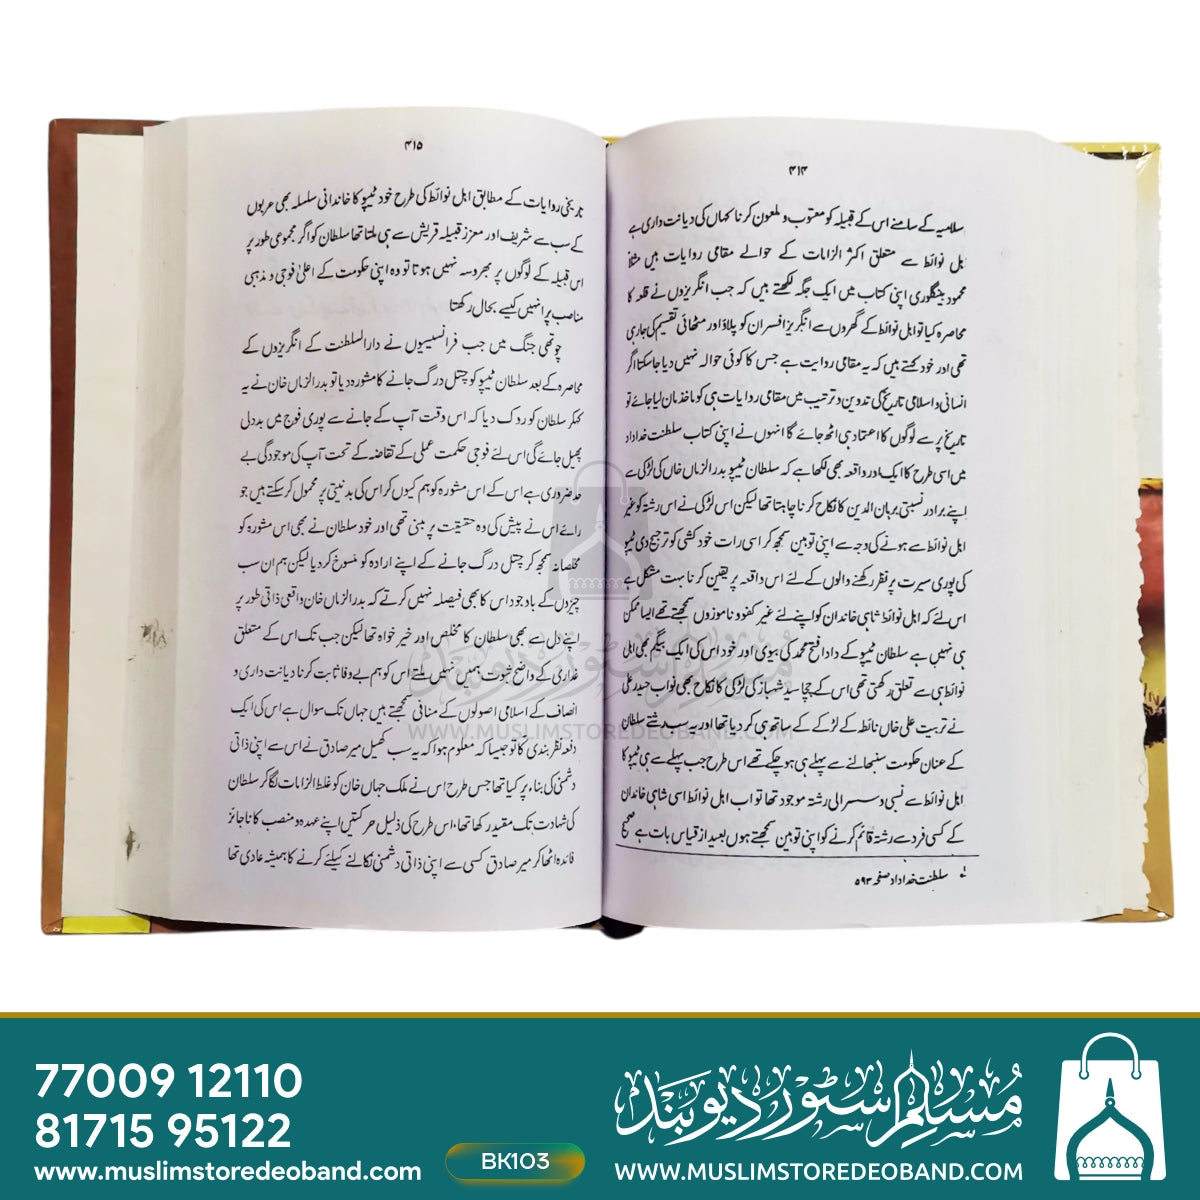 ۴۱۴
سلامیہ کے سامنے اس کے قبیلہ کو معتوب و ملعون کرنا کہاں کی دیانت داری ہے
ہل نوائط سے متعلق اکثر الزامات کے حوالے مقامی روایات ہیں مثلاً
محمود بنگلوری اپنی کتاب میں ایک جگہ لکھتے ہیں کہ جب انگریزوں نے قلعہ کا
محاصرہ کیا تو اہل نوائط کے گھروں سے انگریز افسران کو پلاؤ اور مٹھائی تقسیم کی جاری
تھی اور خود کہتے ہیں کہ یہ مقامی روایت ہے جس کا کوئی حوالہ نہیں دیا جا سکتا اگر
انسانی و اسلامی تاریخ کی تدوین و ترتیب میں مقامی روایات ہی کو ماخذ مان لیا جائے تو
تاریخ پر سے لوگوں کا اعتماد ہی اٹھ جائے گا انہوں نے اپنی کتاب سلطنت خداداد
میں اسی طرح کا ایک اور واقعہ بھی لکھا ہے کہ سلطان ٹیپو بدرالزماں خاں کی لڑکی سے
اپنے برادر نسبتی برہان الدین کا نکاح کرنا چاہتا تھا لیکن اس لڑکی نے اس رشتہ کو غیر
اہل نوائط سے ہونے کی وجہ سے اپنی توہین سمجھ کر اسی رات خودکشی کو ترجیح دی ٹیپو
کی پوری سیرت پر نظر رکھنے والوں کے لئے اس واقعہ پر یقین کرنا بہت مشکل ہے
اس لئے کہ اہل نوائط شاہی خاندان کو اپنے لئے غیر کفو و ناموزوں سمجھتے تھے ایسا ممکن
ہی نہیں ہے سلطان ٹیپو کے دادا فتح محمد کی بیوی اور خود اس کی ایک بیگم بھی اہل
نوائط ہی سے تعلق رکھتی تھی اس کے چچا سید شہباز کی لڑکی کا نکاح بھی نواب حیدر علی
نے تربیت علی خاں نائط کے لڑکے کے ساتھ ہی کر دیا تھا اور یہ سب رشتے سلطان
کے عنان حکومت سنبھالنے سے پہلے ہی ہو چکے تھے اس طرح جب پہلے سے ہی ٹیپو کا
اہل نوائط سے نسبی و سسرالی رشتہ موجود تھا تو اب اہل نوائط اسی شاہی خاندان
کے کسی فرد سے رشتہ قائم کرنے کو اپنی توہین سمجھتے ہوں بعید از قیاس بات ہے صحیح
سلطنت خداداد صفحہ ۵۹۳
۴۱۵
تاریخی روایات کے مطابق اہل نوائط کی طرح خود ٹیپو کا خاندانی سلسلہ بھی عربوں
کے سب سے شریف اور معزز قبیلہ قریش سے ہی ملتا تھا سلطان کو اگر مجموعی طور پر
اس قبیلہ کے لوگوں پر بھروسہ نہیں ہوتا تو وہ اپنی حکومت کے اعلیٰ فوجی و مذہبی
مناصب پر انہیں کیسے بحال رکھتا
چوتھی جنگ میں جب فرانسیسیوں نے دارالسلطنت کے انگریزوں کے
محاصرہ کے بعد سلطان ٹیپو کو چتل درگ جانے کا مشورہ دیا تو بدرالزماں خان نے یہ
کہکر سلطان کو روک دیا کہ اس وقت آپ کے جانے سے پوری فوج میں بددلی
پھیل جائے گی اس لئے فوجی حکمت عملی کے تقاضہ کے تحت آپ کی موجودگی بے
حد ضروری ہے اس کے اس مشورہ کو ہم کیوں کر اس کی بدنیتی پر محمول کر سکتے ہیں جو
رائے اس نے پیش کی وہ حقیقت پر مبنی تھی اور خود سلطان نے بھی اس مشورہ کو
مخلصانہ سمجھ کر چتل درگ جانے کے اپنے ارادہ کو منسوخ کر دیا لیکن ہم ان سب
چیزوں کے باوجود اس کا بھی فیصلہ نہیں کرتے کہ بدرالزماں خان واقعی ذاتی طور پر
اپنے دل سے بھی سلطان کا مخلص اور خیر خواہ تھا لیکن جب تک اس کے متعلق
غداری کے واضح ثبوت ہمیں نہیں ملتے اس کو ہم بے وفا ثابت کرنا دیانت داری و
انصاف کے اسلامی اصولوں کے منافی سمجھتے ہیں جہاں تک سوال ہے اس کی ایک
دفعہ نظر بندی کا تو جیسا کہ معلوم ہوا کہ یہ سب کھیل میر صادق نے اس سے اپنی ذاتی
دشمنی کی بناء پر کیا تھا جس طرح اس نے ملک جہاں خان کو غلط الزامات لگا کر سلطان
کی شہادت تک مقید رکھا تھا، اس طرح کی ذلیل حرکتیں اپنے عہدہ و منصب کا ناجائز
فائدہ اٹھا کر میر صادق کسی سے اپنی ذاتی دشمنی نکالنے کیلئے کرنے کا ہمیشہ عادی تھا
مسلم سٹور دیوبند
WWW.MUSLIMSTOREDEOBAND.COM
77009 12110
81715 95122
www.muslimstoredeoband.com
BK103
مسلم سٹور دیوبند
WWW.MUSLIMSTOREDEOBAND.COM